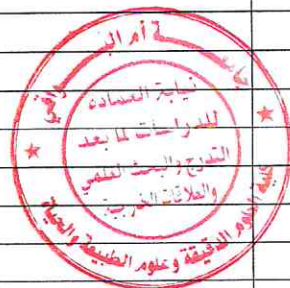 جامعة أم البواقي
نيابة العمادة
للدراسات لما بعد
التدرج والبحث العلمي
والعلاقات الخارجية
كلية العلوم الدقيقة وعلوم الطبيعة والحياة